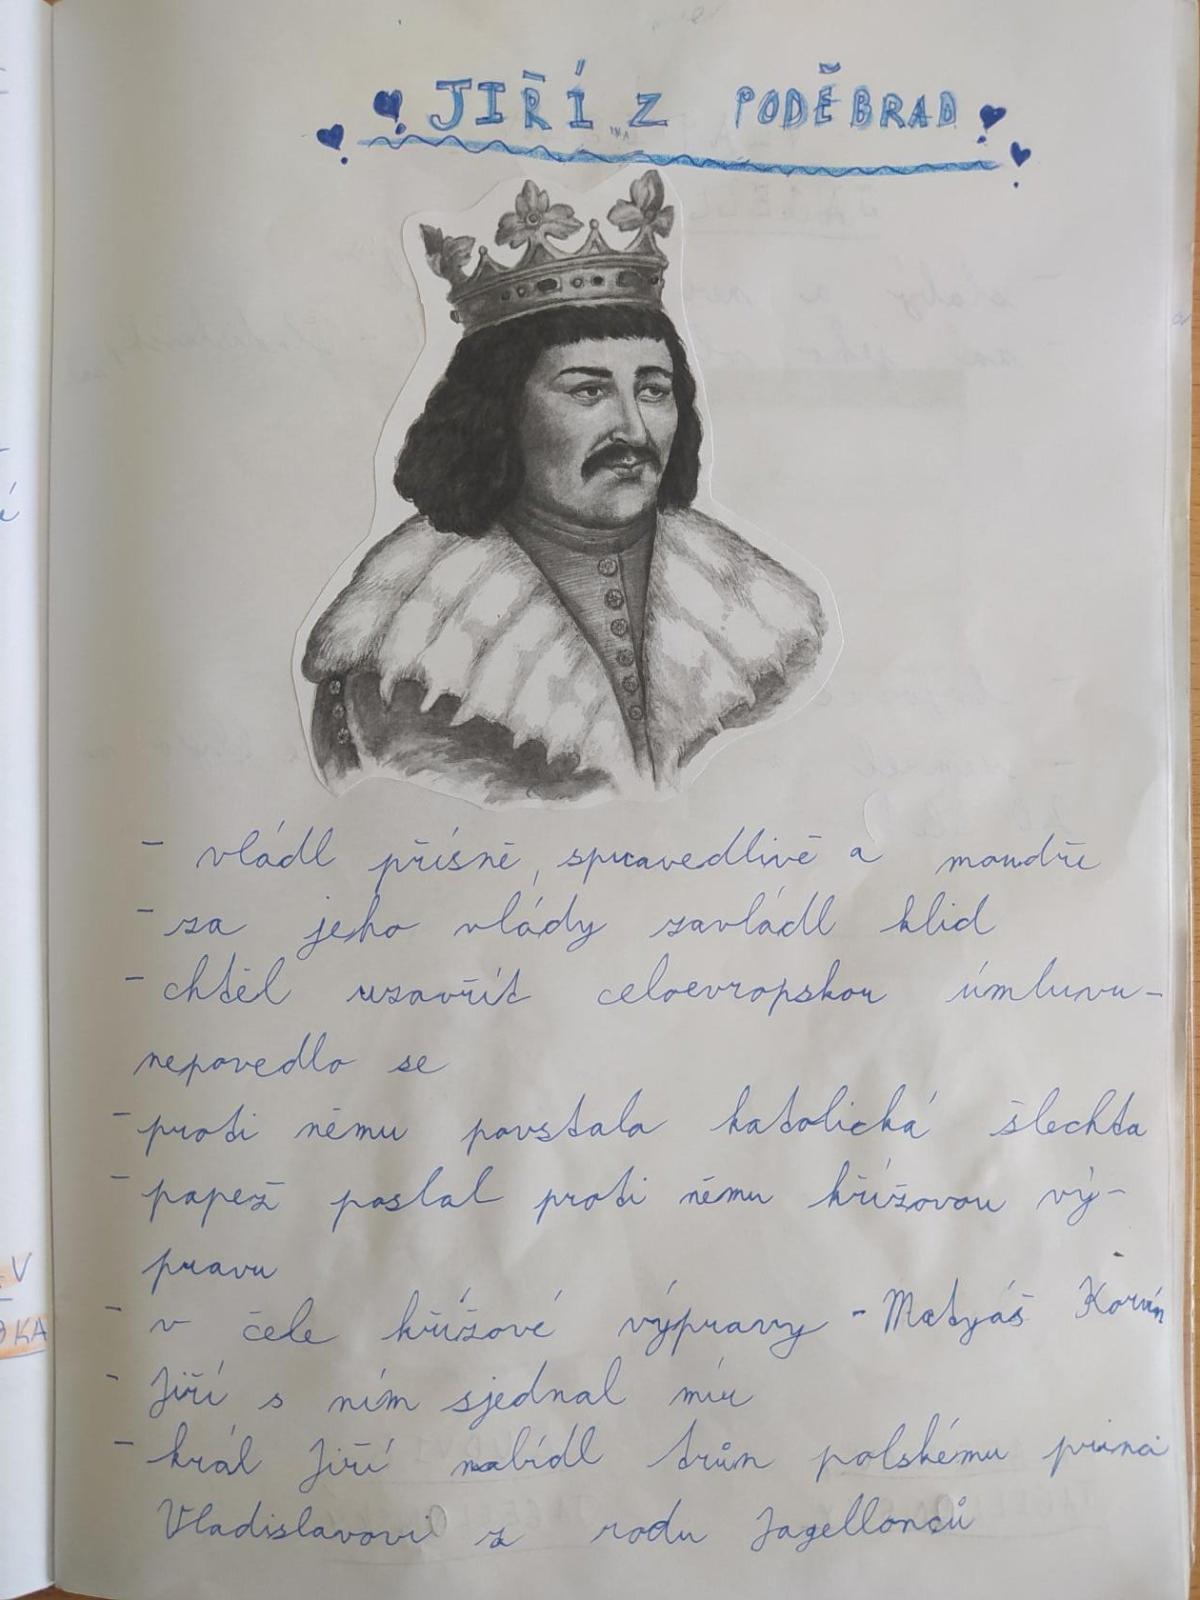 JIŘÍ Z PODĚBRAD
- vládl přísně, spravedlivě a moudře
- za jeho vlády zavládl klid
- chtěl uzavřít celoevropskou úmluvu -
nepovedlo se
- proti němu povstala katolická šlechta
- papež poslal proti němu křížovou vý-
pravu
- v čele křížové výpravy - Matyáš Korvín
- Jiří s ním sjednal mír
- král Jiří nabídl trůn polskému princi
Vladislavovi z rodu Jagellonců